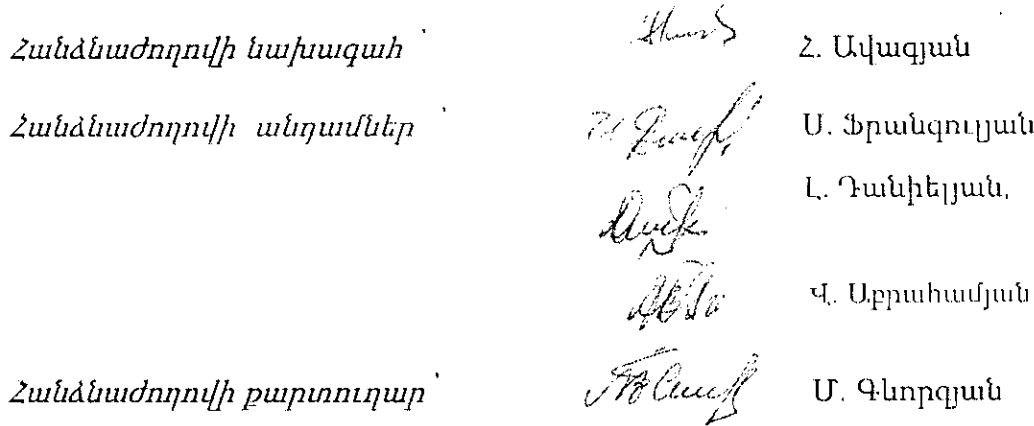 Հանձնաժողովի նախագահ՝ Հ. Ավագյան
Հանձնաժողովի անդամներ Ս. Ֆրանգուլյան
Լ. Դանիելյան,
Վ. Աբրահամյան
Հանձնաժողովի քարտուղար՝ Մ. Գևորգյան